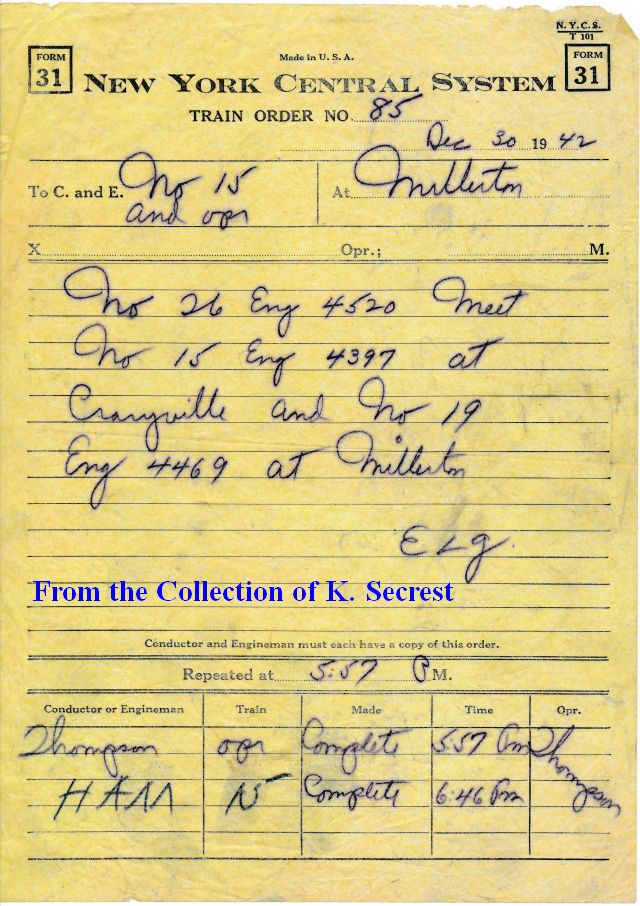 N.Y.C.S.
T 101
FORM
31
Made in U.S.A.
FORM
31
NEW YORK CENTRAL SYSTEM
TRAIN ORDER NO. 85
Dec 30 1942
To C. and E. No 15
and opr
At Millerton
X Opr.; M.
No 26 Eng 4520 Meet
No 15 Eng 4397 at
Craryville and No 19
Eng 4469 at Millerton
ELG
From the Collection of K. Secrest
Conductor and Engineman must each have a copy of this order.
Repeated at 5:57 P M.
Conductor or Engineman Train Made Time Opr.
Thompson opr Complete 5:57 Pm Thompson
HAM 15 Complete 6:46 Pm